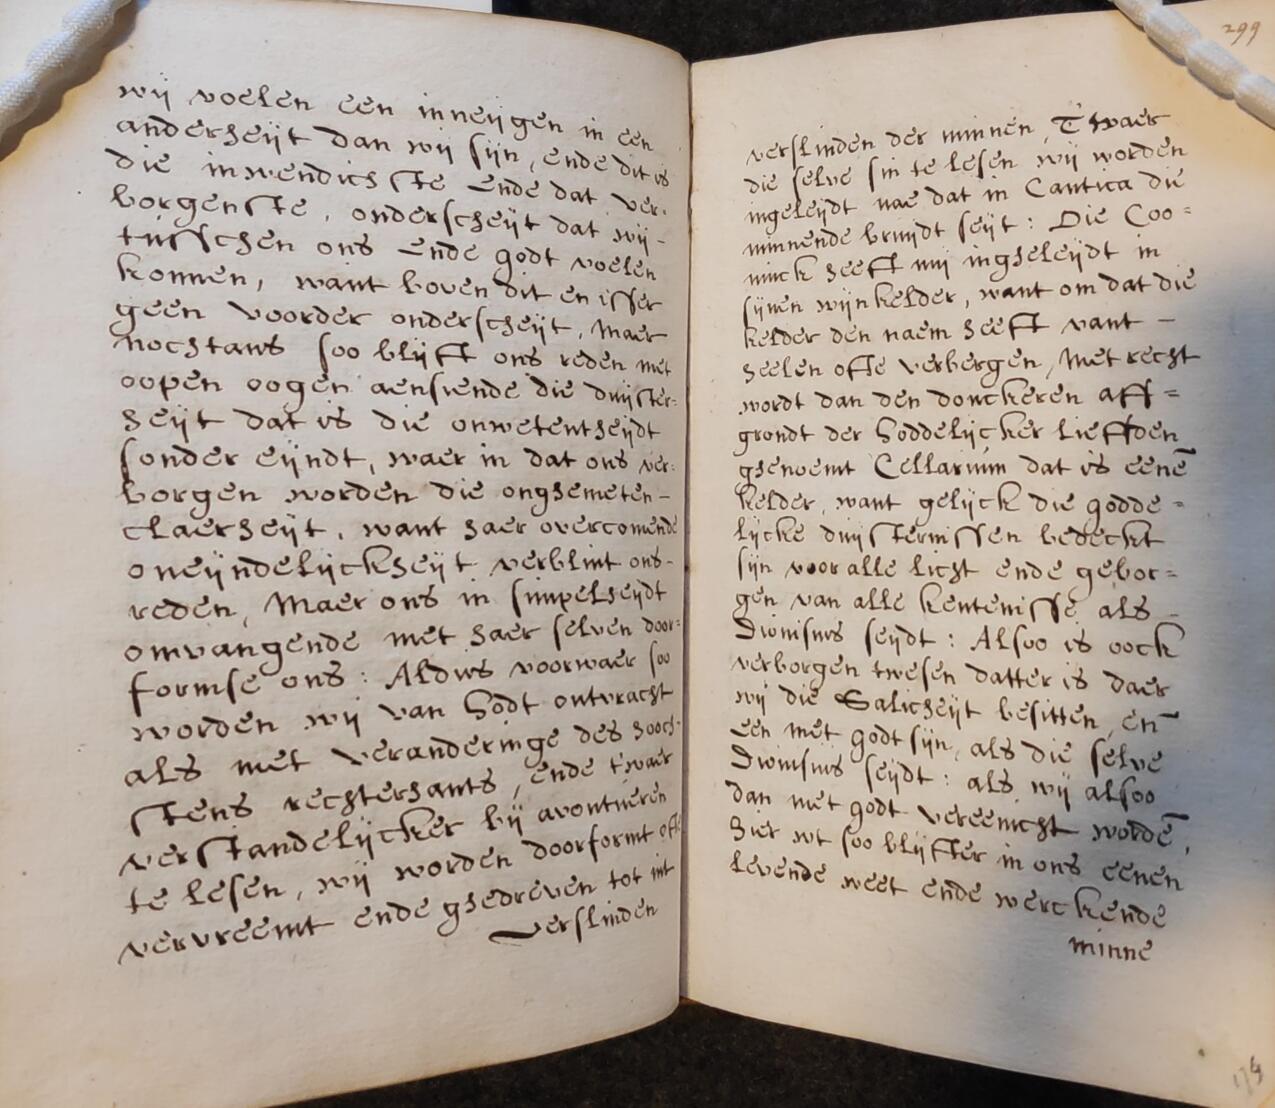 wij voelen een inneijgen in een
anderheijt dan wij sijn, ende dit is
die inwendichste ende dat ver-
borgenste, onderscheijt dat wij -
tusschen ons ende godt voelen
konnen, want boven dit en isser
geen voorder onderscheijt, Maer
nochtans soo blijft ons reden met
oopen oogen aensiende die duijster-
heijt dat is die onwetentheijdt
sonder eijndt, waer in dat ons ver-
borgen worden die onghemeten -
claerheijt, want haer overcomende
oneijndelijckheijt verblint ons -
reden, Maer ons in simpelheijdt
omvangende met haer selven door-
formse ons: Aldus voorwaer soo
worden wij van Godt ontvracht
als met veranderinge des hooch-
stens rechterhants, ende t'waer
verstandelijcker bij avontueren
te lesen, wij worden doorformt oft
vervreemt ende ghedreven tot int
verslinden
299
verslinden der minnen, T'waer
die selve sin te lesen wij worden
ingeleijdt nae dat in Cantica die
minnende bruijdt seijt: Die Coo=
ninck heeft mij ingheleijdt in
sijnen wijnkelder, want om dat die
kelder den naem heeft vant -
heelen ofte verbergen, Met recht
wordt dan den donckeren aff=
grondt der Goddelijcker liefden
ghenoemt Cellarium dat is eenē
kelder, want gelijck die godde=
lijcke duijsternissen bedeckt
sijn voor alle licht ende gebor=
gen van alle kentenisse als -
Dionisius seijdt: Alsoo is oock
verborgen twesen datter is daer
wij die Salicheijt besitten, en̄
een met godt sijn, als die selve
Dionisius seijdt: als wij alsoo
dan met godt vereenicht wordē,
hier wt soo blijfter in ons eenen
levende weet ende werckende
minne